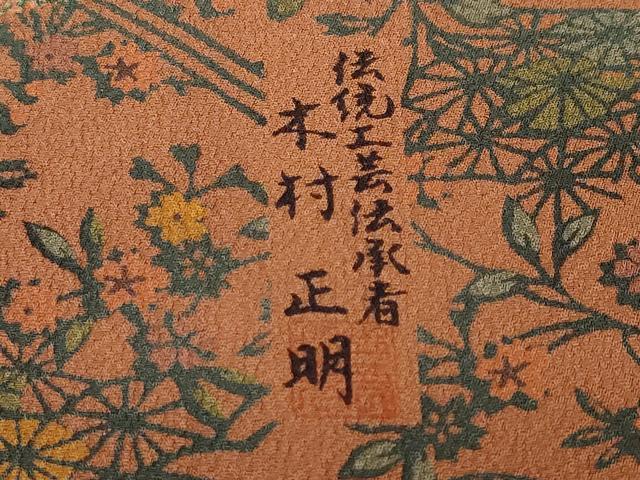 伝統工芸伝承者
木村正明